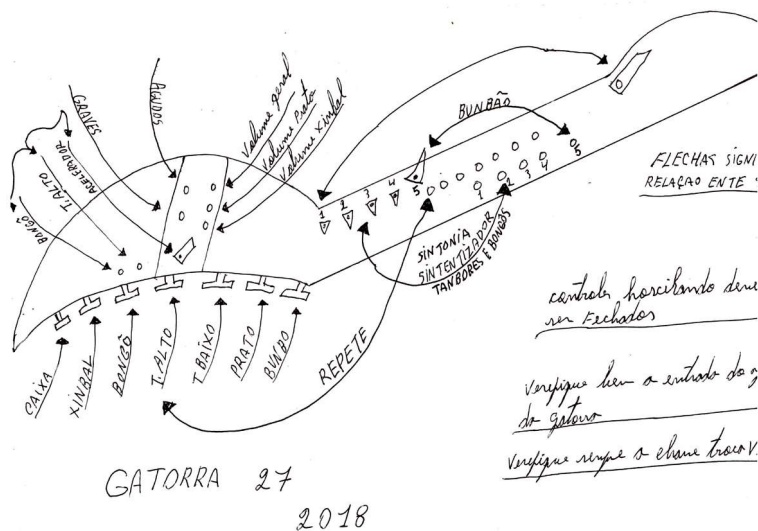 GRAVES
AGUDOS
Volume geral
Volume Prato
Volume Xinbal
ACELERADOR
T. ALTO
BONGÔ
BUNBÃO
1 2 3 4 5
1 2 3 4 5
SINTONIA
SINTENTIZADOR
TANBORES E BONGÔS
REPETE
CAIXA
XINBAL
BONGÔ
T. ALTO
T BAIXO
PRATO
BUNBO
FLECHAS SIGNI
RELAÇAO ENTE
controles horcilando deve
ser Fechados
Verefique bem a entrada do
da gatorra
Verefique sempre a chave troca V.
GATORRA 27
2018